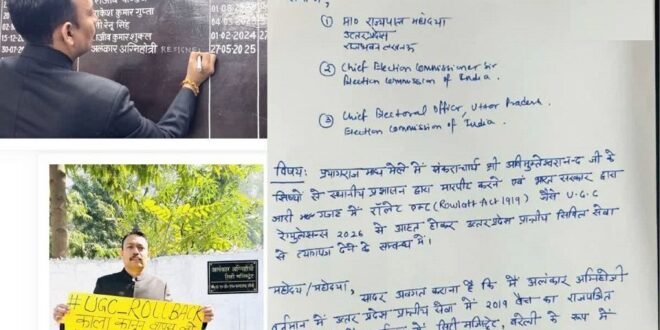 राकेश कुमार गुप्ता
रेनू सिंह
राजीव कुमार शुक्ल 01-02-2024
30-07-20 अलंकार अग्निहोत्री RESIGNE 27-05-2025
अलंकार अग्निहोत्री
सिटी मजिस्ट्रेट
#UGC_ROLLBACK
काला कानून वापस लो
① मा० राज्यपाल महोदया
उत्तर प्रदेश
राजभवन लखनऊ
② Chief Election Commissioner Sir
Election Commission of India.
③ Chief Electoral Officer, Uttar Pradesh
Election Commission of India.
विषय: प्रयागराज माघ मेले में शंकराचार्य श्री अविमुक्तेश्वरानन्द जी के
शिष्यों से स्थानीय प्रशासन द्वारा मारपीट करने एवं भारत सरकार द्वारा
जारी में रॉलेट एक्ट (Rowlatt Act 1919) जैसे U.G.C
रेगुलेसन्स 2026 से आहत होकर उत्तर प्रदेश प्रान्तीय सिविल सेवा
से त्यागपत्र देने के सम्बन्ध में।
महोदय/महोदया,
सादर अवगत कराना है कि मैं अलंकार अग्निहोत्री
वर्तमान में उत्तर प्रदेश प्रान्तीय सेवा में 2019 बैच का राजपत्रित
सिटी मजिस्ट्रेट, बरेली के रूप में